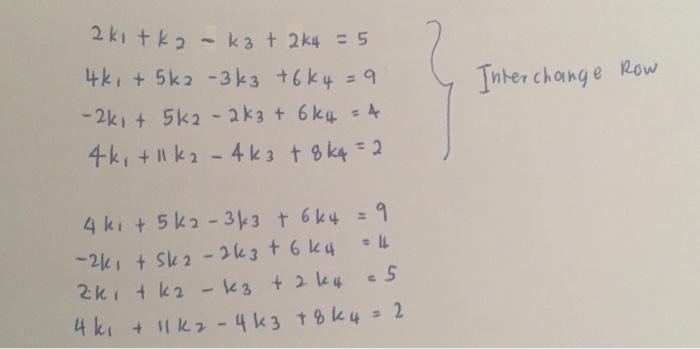 2k1 + k2 - k3 + 2k4 = 5
4k1 + 5k2 - 3k3 + 6k4 = 9
-2k1 + 5k2 - 2k3 + 6k4 = 4
4k1 + 11k2 - 4k3 + 8k4 = 2
Interchange Row
4k1 + 5k2 - 3k3 + 6k4 = 9
-2k1 + 5k2 - 2k3 + 6k4 = 4
2k1 + k2 - k3 + 2k4 = 5
4k1 + 11k2 - 4k3 + 8k4 = 2